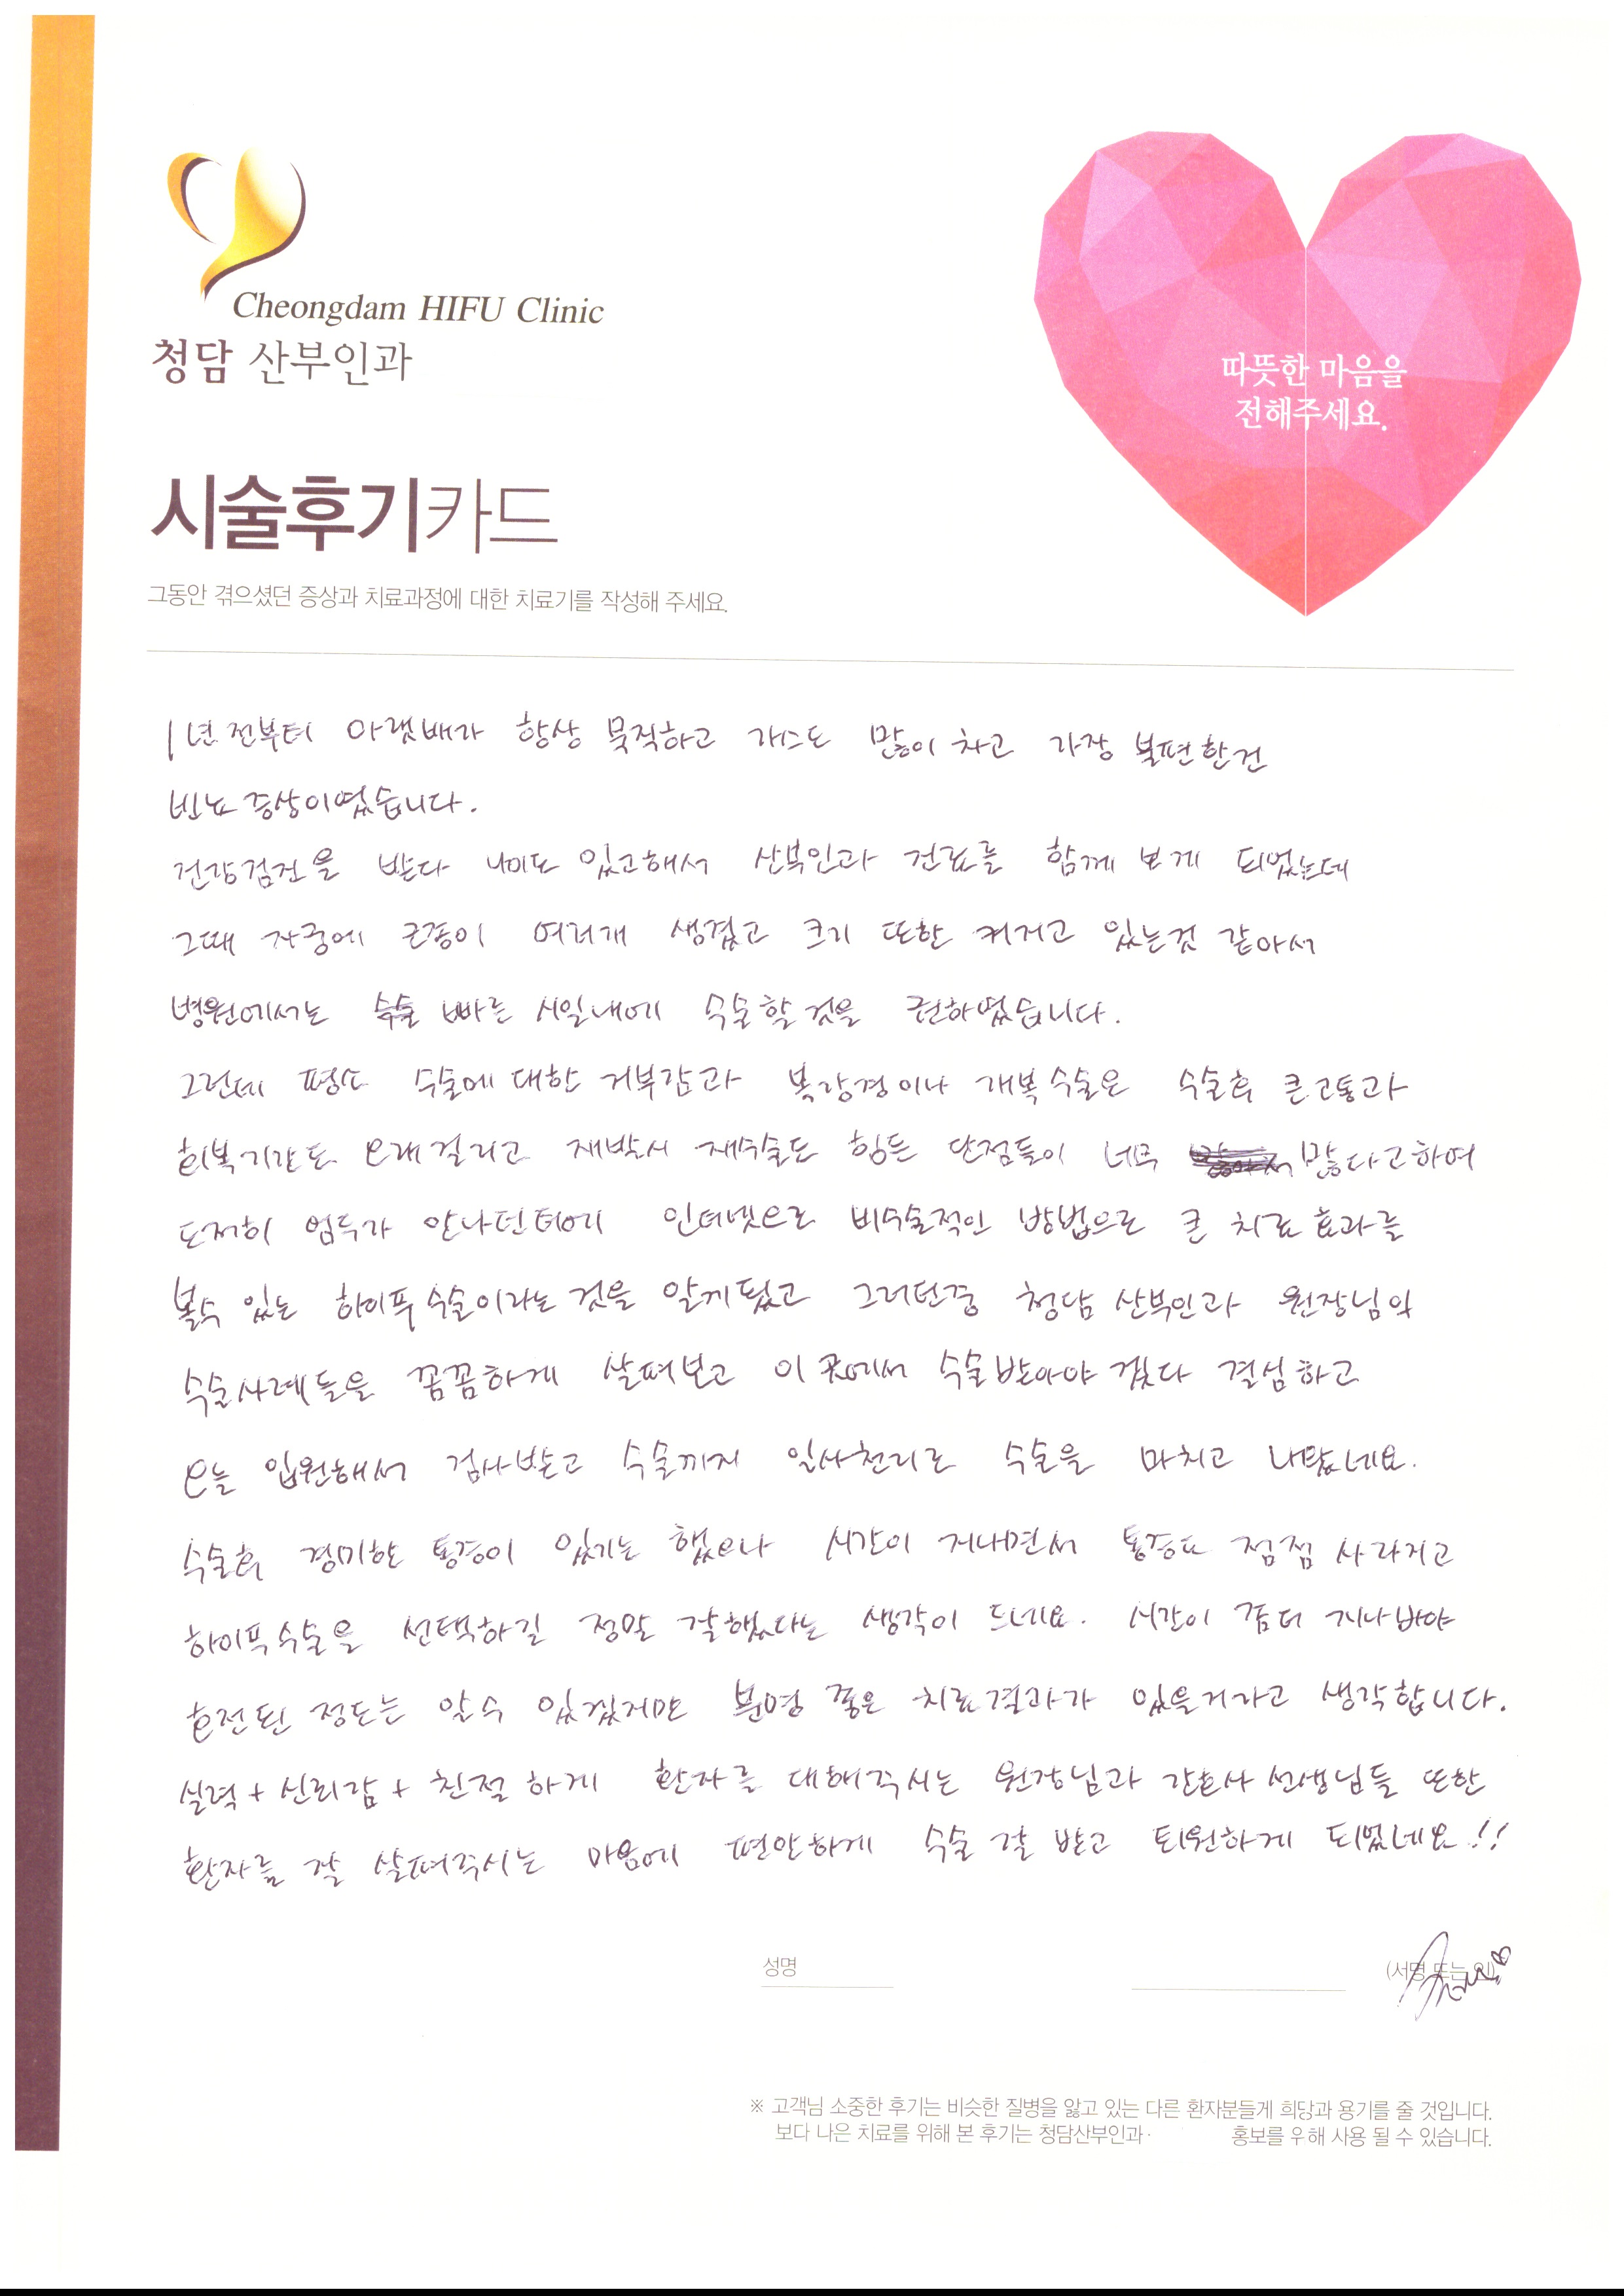 Cheongdam HIFU Clinic
청담 산부인과
따뜻한 마음을
전해주세요.
시술후기카드
그동안 겪으셨던 증상과 치료과정에 대한 치료기를 작성해 주세요.
1년 전부터 아랫배가 항상 묵직하고 가스도 많이 차고 가장 불편한건
빈뇨 증상이였습니다.
건강검진을 받다 나이도 있고해서 산부인과 진료를 함께 보게 되었는데
그때 자궁에 근종이 여러개 생겼고 크기 또한 커지고 있는것 같아서
병원에서는 빠른 시일내에 수술할것을 권하였습니다.
그런데 평소 수술에 대한 거부감과 복강경이나 개복수술은 수술후 큰고통과
회복기간도 오래걸리고 재발시 재수술도 힘든 단점들이 너무 많다고하여
도저히 엄두가 안나던터에 인터넷으로 비수술적인 방법으로 큰 치료효과를
볼수 있는 하이푸수술이라는 것을 알게됬고 그러던중 청담 산부인과 원장님의
수술사례들을 꼼꼼하게 살펴보고 이곳에서 수술받아야 겠다 결심하고
오늘 입원해서 검사받고 수술까지 일사천리로 수술을 마치고 나왔네요.
수술후 경미한 통증이 있기는 했으나 시간이 지나면서 통증도 점점 사라지고
하이푸수술을 선택하길 정말 잘했다는 생각이 드네요. 시간이 좀더 지나봐야
호전된 정도는 알수 있겠지만 분명 좋은 치료결과가 있을거라고 생각합니다.
실력+신뢰감+친절하게 환자를 대해주시는 원장님과 간호사 선생님들 또한
환자를 잘 살펴주시는 마음에 편안하게 수술 잘 받고 퇴원하게 되었네요!!
성명
(서명 또는 인)
※ 고객님 소중한 후기는 비슷한 질병을 앓고 있는 다른 환자분들게 희당과 용기를 줄 것입니다.
보다 나은 치료를 위해 본 후기는 청담산부인과· 홍보를 우해 사용 될 수 있습니다.